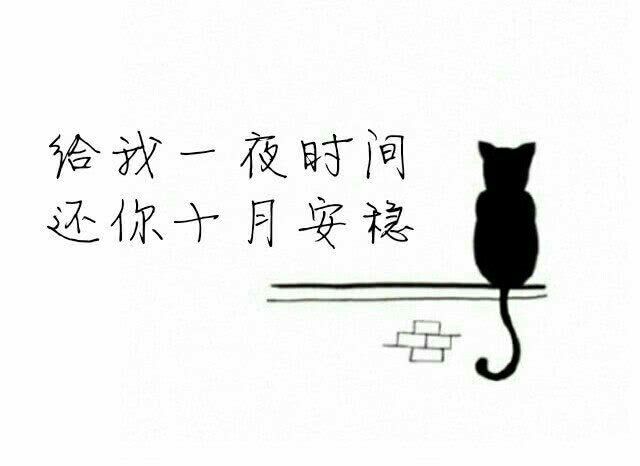 给我一夜时间
还你十月安稳